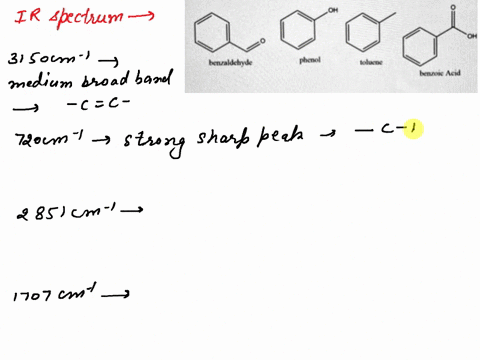 IR spectrum →
OH
O
O
OH
benzaldehyde
phenol
toluene
benzoic Acid
3150cm⁻¹ →
medium broad band
→ -C=C-
720cm⁻¹ → strong sharp peak → - C-
2851cm⁻¹ →
1707cm⁻¹ →